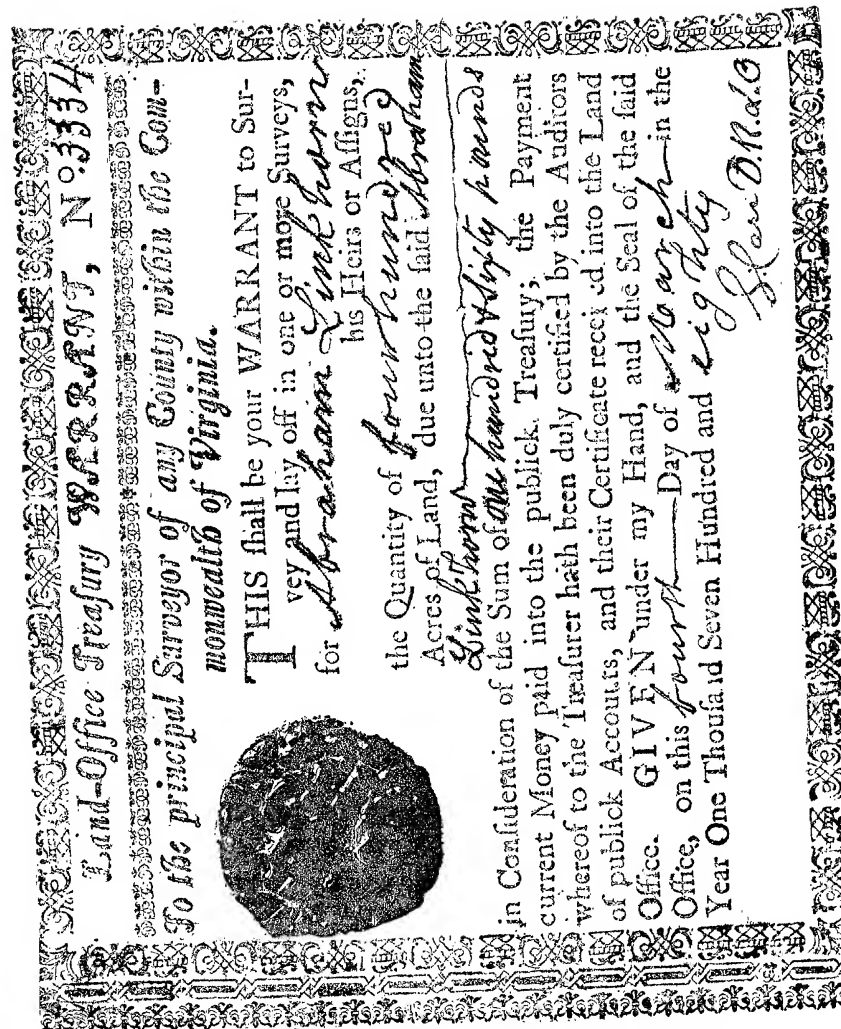 Land-Office Treaſury WARRANT, No. 3334
To the principal Surveyor of any County within the Com-
monwealth of Virginia.
THIS ſhall be your WARRANT to Sur-
vey and lay off in one or more Surveys,
for Abraham Linkhorn
his Heirs or Aſſigns,
the Quantity of four hundred
Acres of Land, due unto the ſaid Abraham
Linkhorn
in Conſideration of the Sum of one hundred & sixty pounds
current Money paid into the publick Treaſury; the Payment
whereof to the Treaſurer hath been duly certified by the Auditors
of publick Accounts, and their Certificate received into the Land
Office. GIVEN under my Hand, and the Seal of the ſaid
Office, on this fourth Day of March in the
Year One Thouſand Seven Hundred and eighty